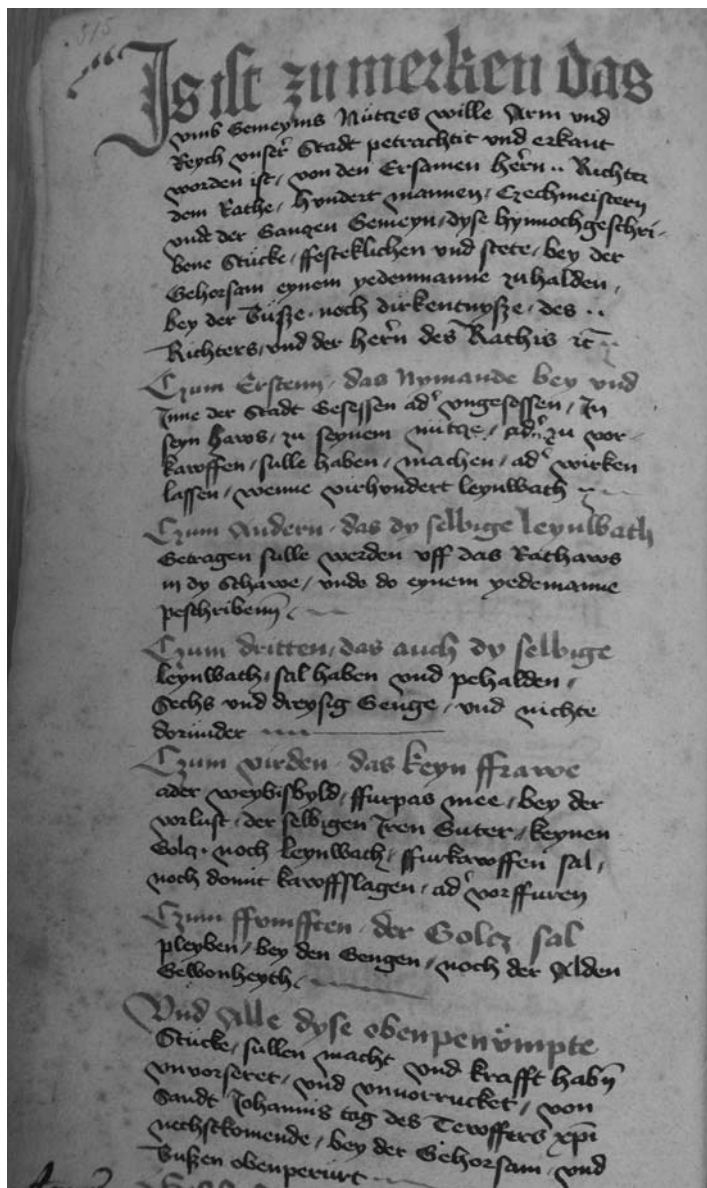 515
Is ist zu merken das
vmb Gemeyms Nutczes wille Arm vnd
Reych vnser Stadt petrachtit vnd erkant
worden ist, von den Ersamen hern .. Richter
dem Rathe, hundert mannen, Czechmeistern
vnde der Ganczen Gemeyn, dyse hyrnochgeschri-
bene Stücke, ffesteklichen vnd stete, bey der
Gehorsam eynem yedenmanne zu halden,
bey der Bussze, noch dirkentnysze, des ..
Richters, vnd der hern des Rathis ꝛc ..
Czum Erstenn, das Nymande bey vnd
Inne der Stadt Gesessen ad' vngesessen, In
seyn haws, zu seynem nutcze, ad' zu vor-
kawffen, sulle haben, machen, ad' wirken
lassen, wenne virhundert leynwath
Czum Andern, das dy selbige leynwath
Getragen sulle werden vff das Rathaws
in dy Schawe, vnde do eynem yedemanne
peschribenn
Czum dritten, das auch dy selbige
leynwath, sal haben vnd pehalden,
Sechs vnd dreysig Genge, vnd nichte
dorunder
Czum virden, das keyn ffrawe
ader weybisbyld, ffurpas mee, bey der
vorlust, der selbigen Iren Guter, keynen
Golcz, noch leynwath, ffurkawffen sal,
noch domit kawffslagen, ad' vorffuren
Czum ffumfften, der Golcz sal
pleyben, bey den Gengen, noch der Alden
Gewonheyth.
Vnd Alle dyse obenpenümpte
Stücke, sullen macht vnd krafft habn
vnvorseret, vnd vnuorrucket, von
Sandt Johannis tag des Tewffers xpi
nechstkomende, bey der Gehorsam, vnd
Bussen obenperürt